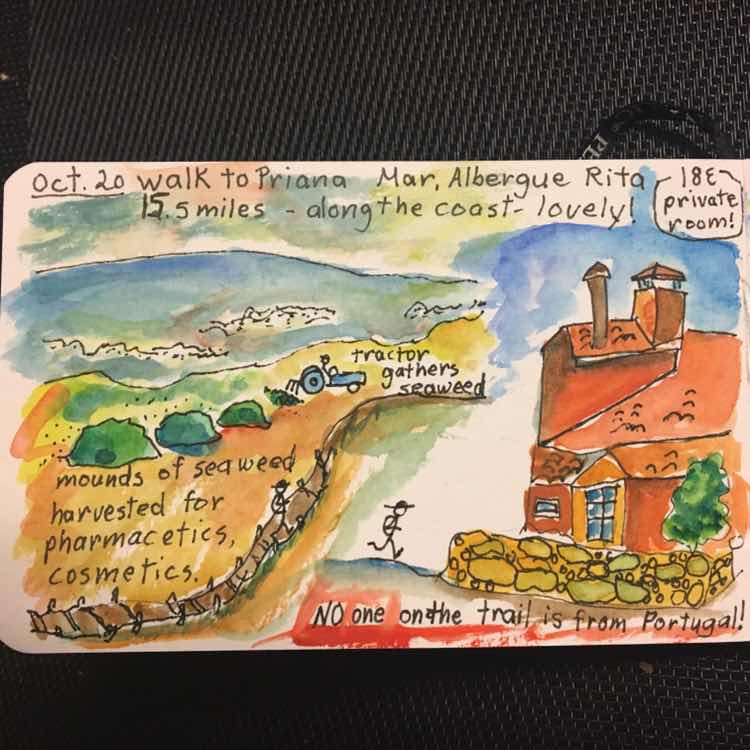 Oct. 20 walk to Priana Mar, Albergue Rita
15.5 miles - along the coast - lovely!
18€
private
room!
tractor
gathers
seaweed
mounds of seaweed
harvested for
pharmacetics,
cosmetics.
NO one on the trail is from Portugal!